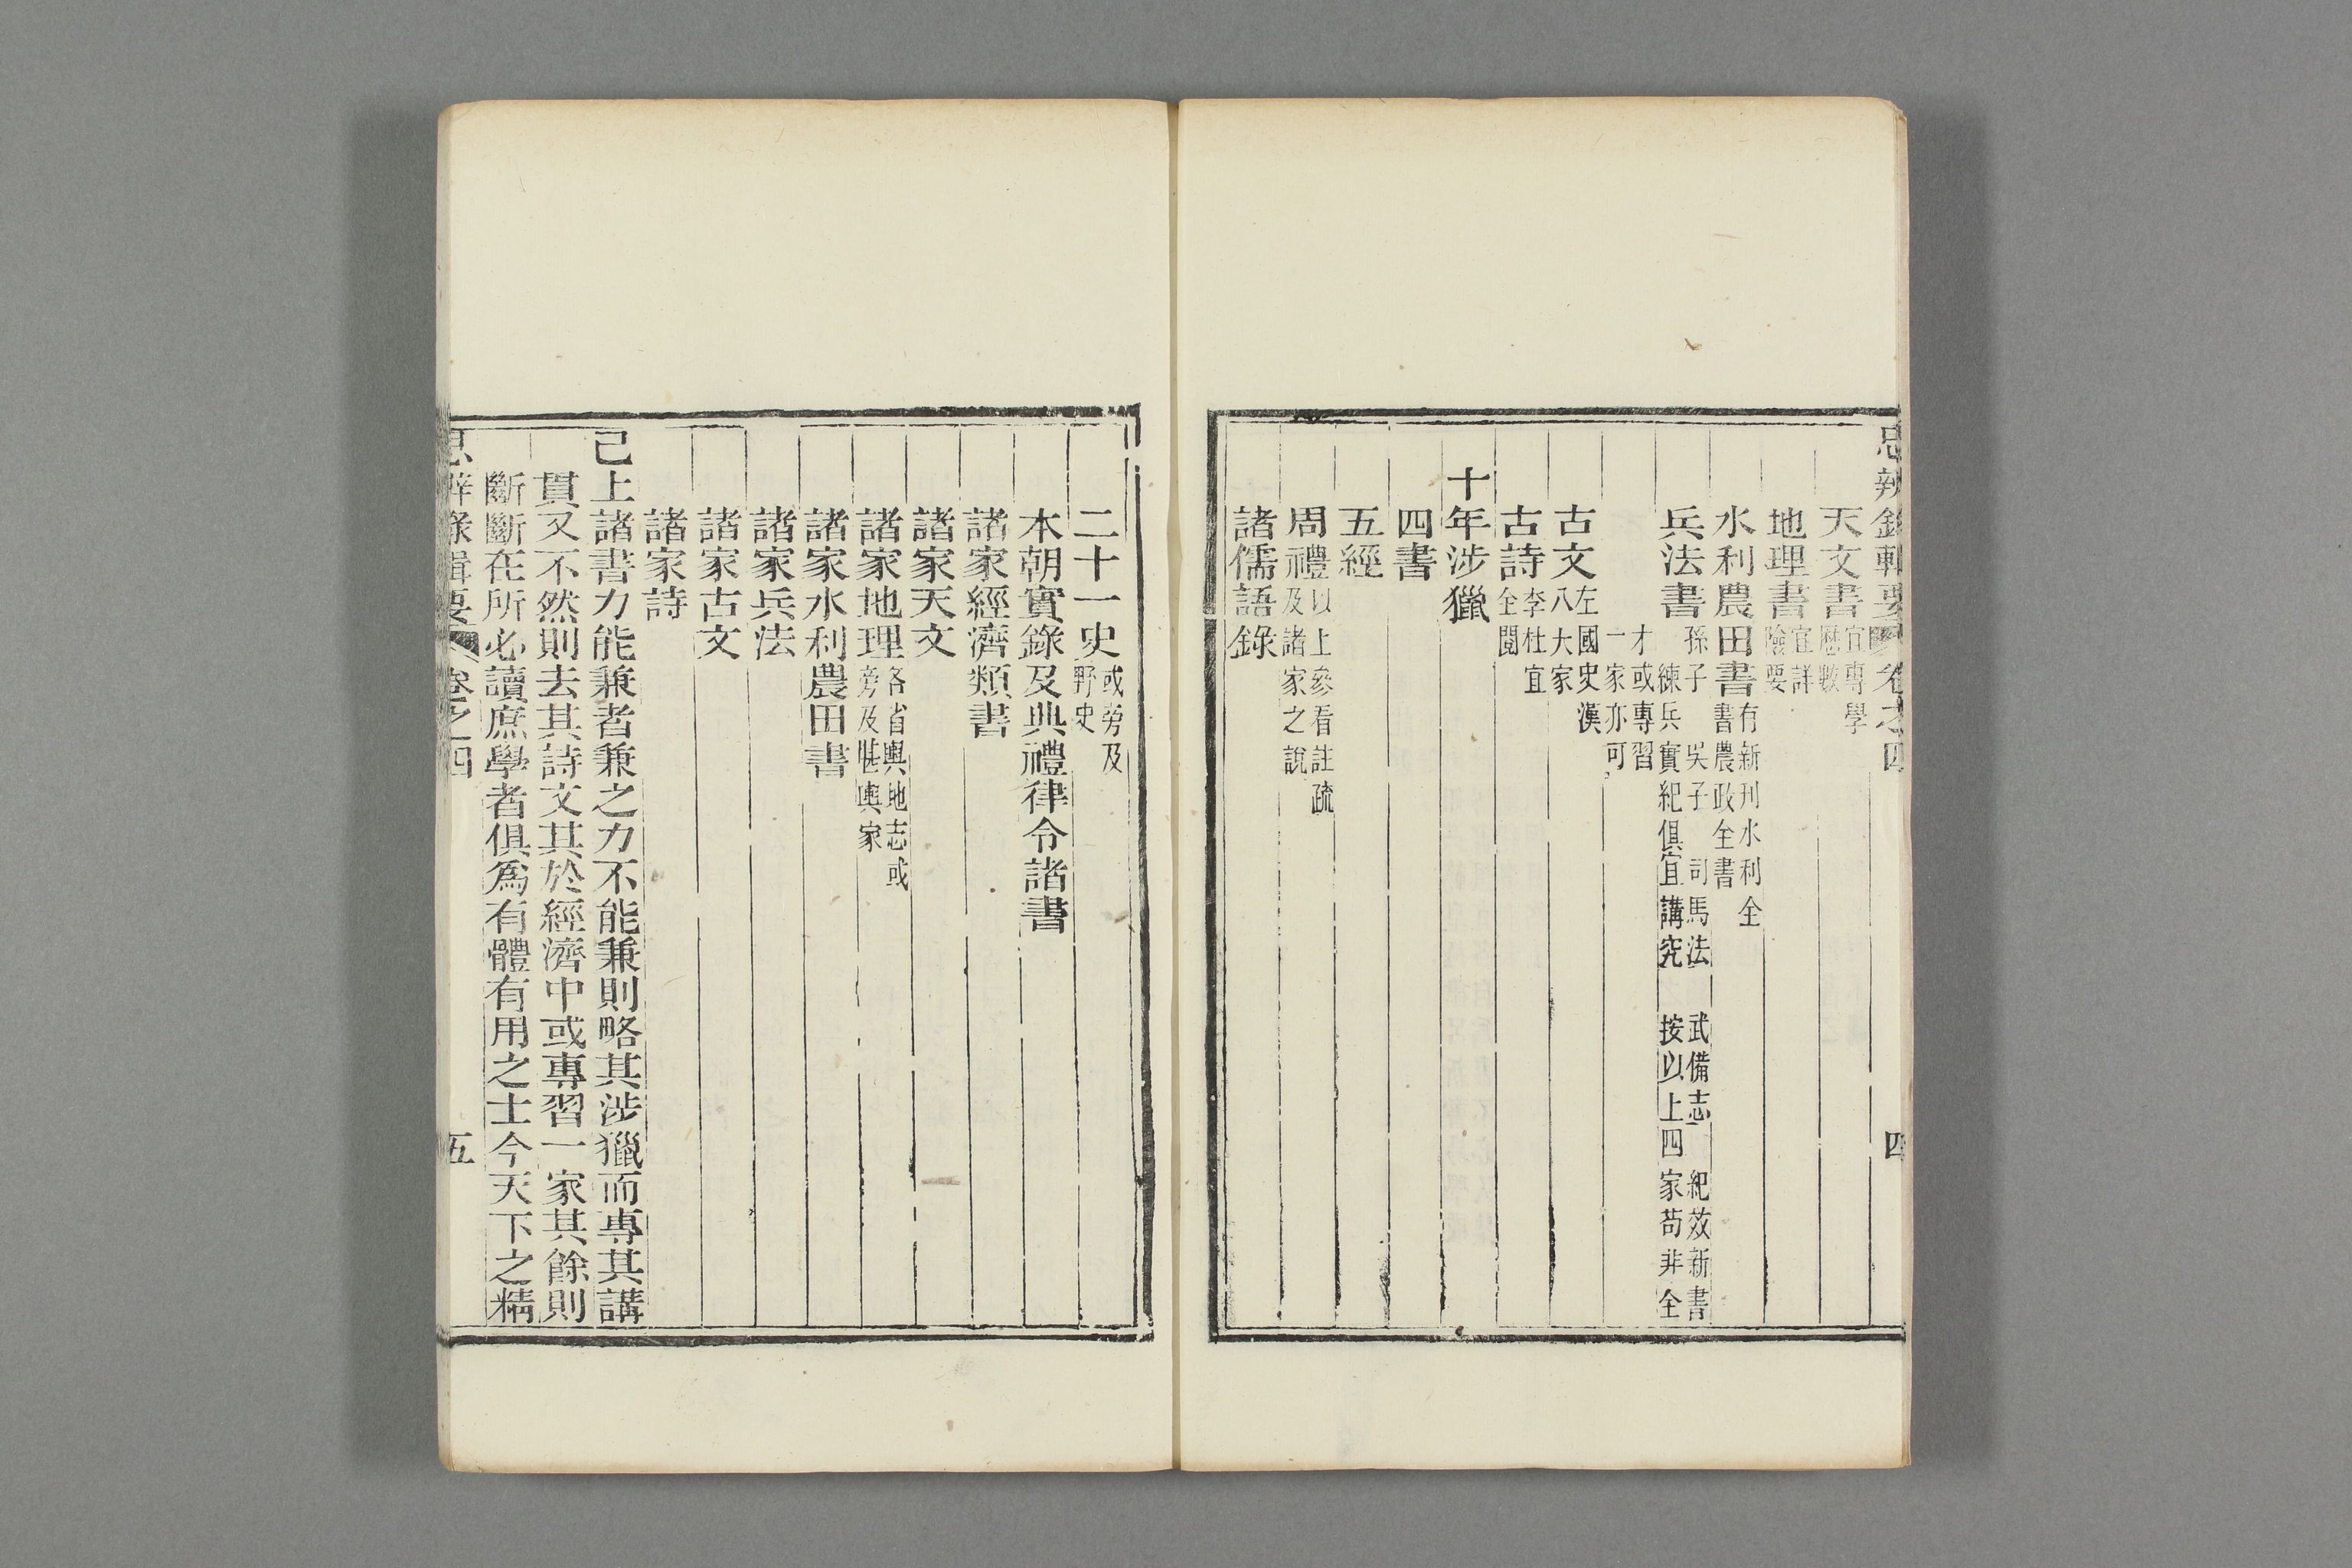 思辨錄輯要 卷之四 四
天文書宜專學曆數
地理書宜詳險要
水利農田書有新刊水利全書農政全書
兵法書孫子 吳子 司馬法 武備志 紀效新書練兵實紀俱宜講究 按以上四家苟非全
才或專習一家亦可
古文左國史漢八大家
古詩李杜宜全閱
十年涉獵
四書
五經
周禮以上參看註疏及諸家之說
諸儒語錄
二十一史或旁及野史
本朝實錄及典禮律令諸書
諸家經濟類書
諸家天文
諸家地理各省輿地志或旁及堪輿家
諸家水利農田書
諸家兵法
諸家古文
諸家詩
已上諸書力能兼者兼之力不能兼則略其涉獵而專其講
貫又不然則去其詩文其於經濟中或專習一家其餘則
斷斷在所必讀庶學者俱爲有體有用之士今天下之精
思辨錄輯要 卷之四 五